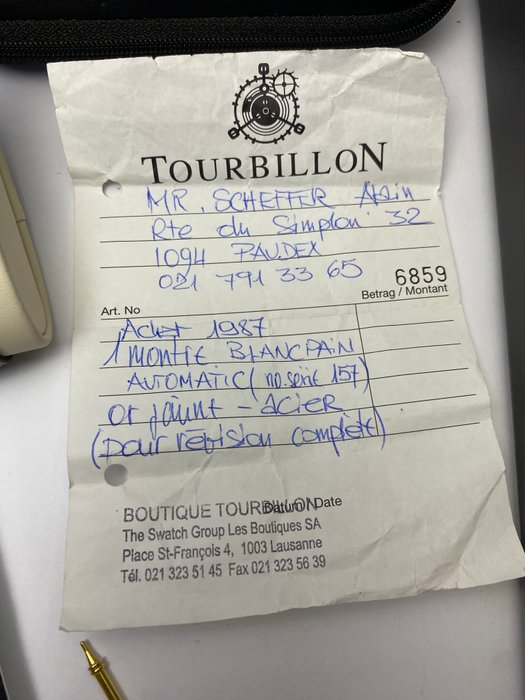 TOURBILLON
MR. SCHEFFER Alain
Rte du Simplon 32
1094 PAUDEX
021 791 33 65
6859
Betrag / Montant
Art. No
1987
1 montre BLANCPAIN
AUTOMATIC (no. série 157)
or jaune - ACIER
(pour révision complète)
Datum / Date
BOUTIQUE TOURBILLON
The Swatch Group Les Boutiques SA
Place St-François 4, 1003 Lausanne
Tél. 021 323 51 45 Fax 021 323 56 39